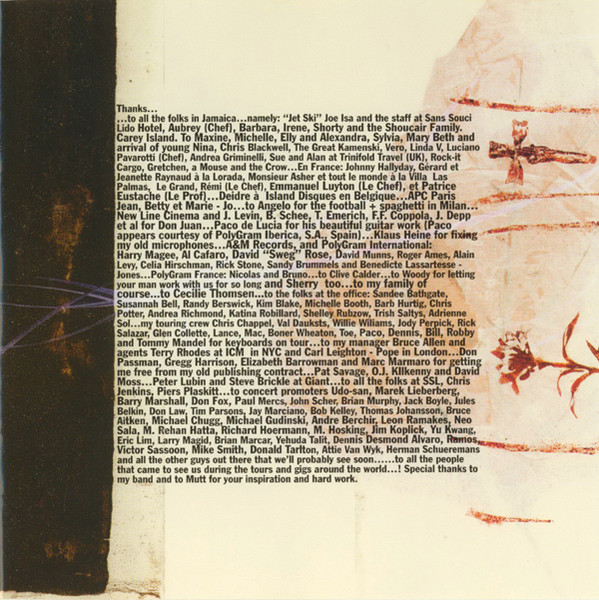 Thanks...
...to all the folks in Jamaica...namely: "Jet Ski" Joe Isa and the staff at Sans Souci
Lido Hotel, Aubrey (Chef), Barbara, Irene, Shorty and the Shoucair Family.
Carey Island. To Maxine, Michelle, Elly and Alexandra, Sylvia, Mary Beth and
arrival of young Nina, Chris Blackwell, The Great Kamenski, Vero, Linda V, Luciano
Pavarotti (Chef), Andrea Griminelli, Sue and Alan at Trinifold Travel (UK), Rock-it
Cargo, Gretchen, a Mouse and the Crow...En France: Johnny Hallyday, Gérard et
Jeanette Raynaud à la Lorada, Monsieur Asher et tout le monde à la Villa Las
Palmas, Le Grand, Rémi (Le Chef), Emmanuel Luyton (Le Chef), et Patrice
Eustache (Le Prof)...Deidre à Island Disques en Belgique...APC Paris
Jean, Betty et Marie - Jo...to Angelo for the football + spaghetti in Milan...
New Line Cinema and J. Levin, B. Schee, T. Emerich, F.F. Coppola, J. Depp
et al for Don Juan...Paco de Lucia for his beautiful guitar work (Paco
appears courtesy of PolyGram Iberica, S.A., Spain)...Klaus Heine for fixing
my old microphones...A&M Records, and PolyGram International:
Harry Magee, Al Cafaro, David "Sweg" Rose, David Munns, Roger Ames, Alain
Levy, Celia Hirschman, Rick Stone, Sandy Brummels and Benedicte Lassartesse -
Jones...PolyGram France: Nicolas and Bruno...to Clive Calder...to Woody for letting
your man work with us for so long and Sherry too...to my family of
course...to Cecilie Thomsen...to the folks at the office: Sandee Bathgate,
Susannah Bell, Randy Berswick, Kim Blake, Michelle Booth, Barb Hurtig, Chris
Potter, Andrea Richmond, Katina Robillard, Shelley Rubzow, Trish Saltys, Adrienne
Sol...my touring crew Chris Chappel, Val Dauksts, Willie Wiliams, Jody Perpick, Rick
Salazar, Glen Collette, Lance, Mac, Boner Wheaton, Toe, Paco, Dennis, Bill, Robby
and Tommy Mandel for keyboards on tour...to my manager Bruce Allen and
agents Terry Rhodes at ICM in NYC and Carl Leighton - Pope in London...Don
Passman, Gregg Harrison, Elizabeth Barrowman and Marc Marmaro for getting
me free from my old publishing contract...Pat Savage, O.J. KIlkenny and David
Moss...Peter Lubin and Steve Brickle at Giant...to all the folks at SSL, Chris
Jenkins, Piers Plaskitt...to concert promoters Udo-san, Marek Lieberberg,
Barry Marshall, Don Fox, Paul Mercs, John Scher, Brian Murphy, Jack Boyle, Jules
Belkin, Don Law, Tim Parsons, Jay Marciano, Bob Kelley, Thomas Johansson, Bruce
Aitken, Michael Chugg, Michael Gudinski, Andre Berchir, Leon Ramakes, Neo
Sala, M. Rehan Hatta, Richard Hoermann, M. Hosking, Jim Koplick, Yu Kwang,
Eric Lim, Larry Magid, Brian Marcar, Yehuda Talit, Dennis Desmond Alvaro, Ramos,
Victor Sassoon, Mike Smith, Donald Tarlton, Attie Van Wyk, Herman Schueremans
and all the other guys out there that we'll probably see soon......to all the people
that came to see us during the tours and gigs around the world...! Special thanks to
my band and to Mutt for your inspiration and hard work.